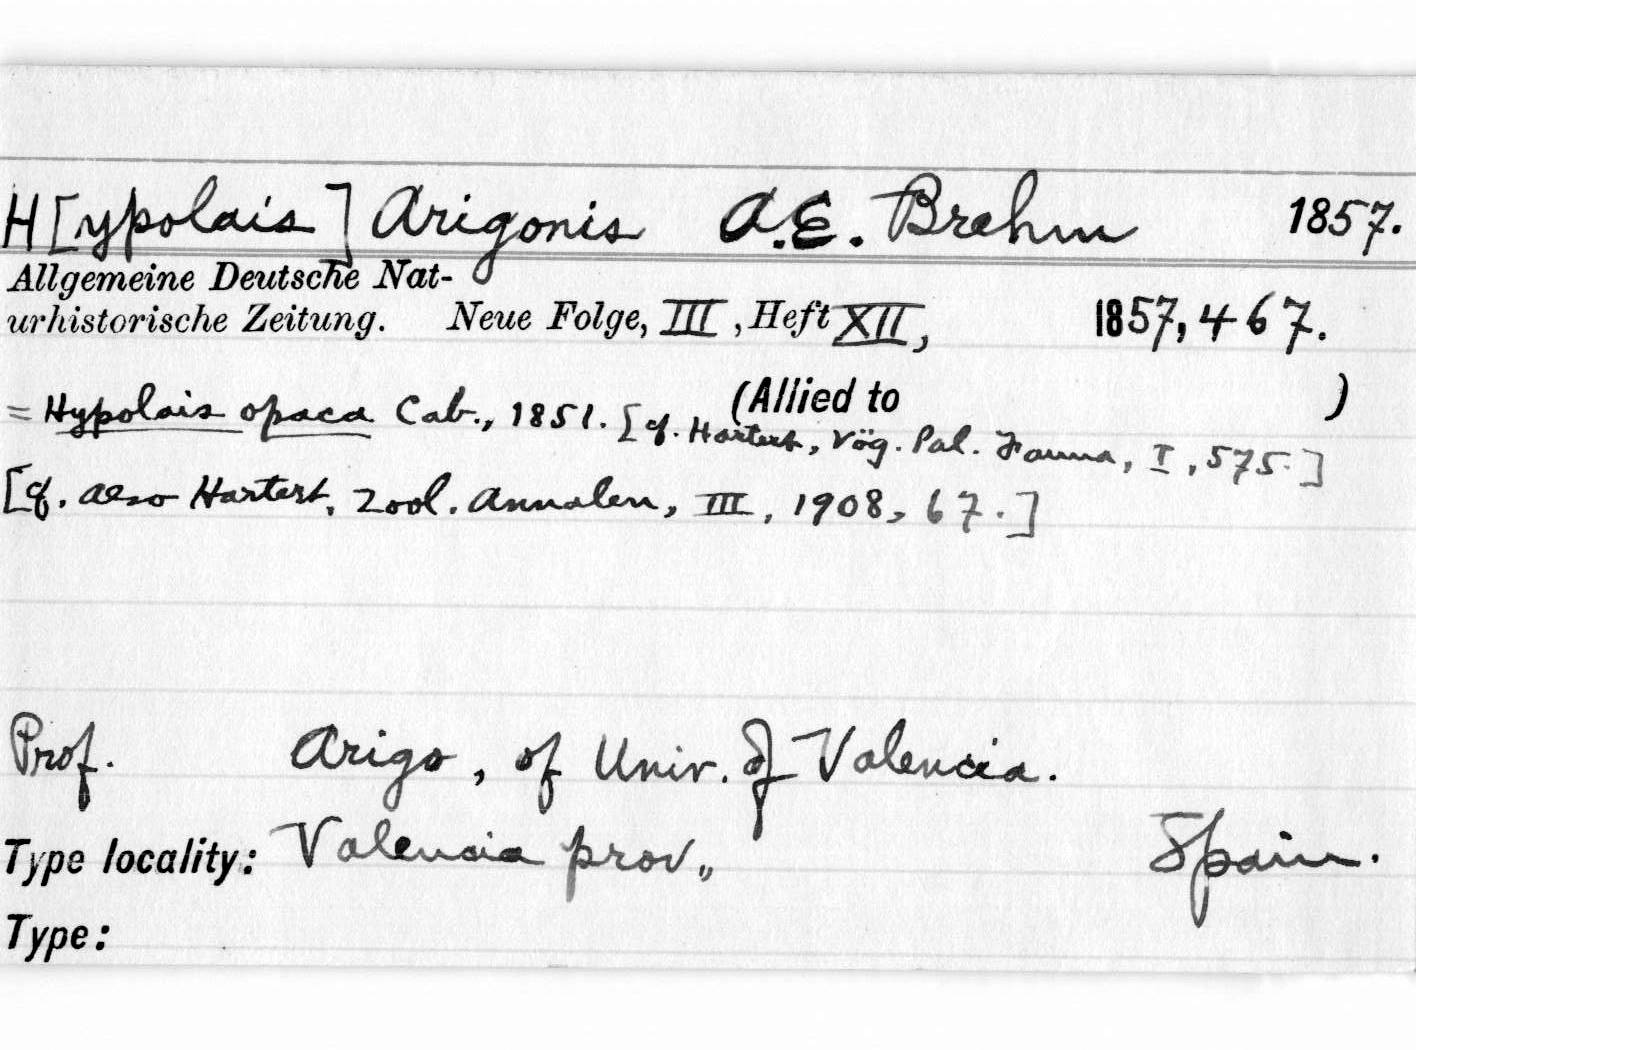 H[ypolais] Arigonis A.E. Brehm 1857.
Allgemeine Deutsche Nat-
urhistorische Zeitung. Neue Folge, III, Heft XII, 1857, 467.
(Allied to )
= Hypolais opaca Cab., 1851. [cf. Hartert, Vög. Pal. Fauna, I, 575.]
[cf. also Hartert, Zool. Annalen, III, 1908, 67.]
Prof. Arigo, of Univ. of Valencia.
Type locality: Valencia prov., Spain.
Type: